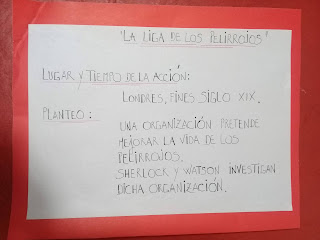 "LA LIGA DE LOS PELIRROJOS"
LUGAR Y TIEMPO DE LA ACCIÓN:
LONDRES, FINES SIGLO XIX.
PLANTEO:
UNA ORGANIZACIÓN PRETENDE
MEJORAR LA VIDA DE LOS
PELIRROJOS.
SHERLOCK Y WATSON INVESTIGAN
DICHA ORGANIZACIÓN.